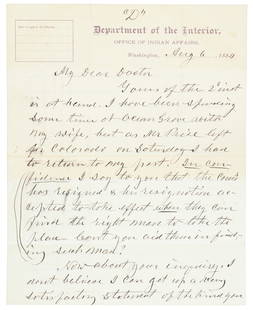 "D"
Department of the Interior,
OFFICE OF INDIAN AFFAIRS,
Washington, Aug 6 1884
My Dear Doctor
Yours of the 2nd inst
is at hand. I have been spending
some time at Ocean Grove with
my wife, but as Mr Price left
for Colorado on Saturday I had
to return to my post. In con-
fidence I say to you that the Com
has resigned & his resignation ac-
cepted to take effect when they can
find the right man to take the
place. Can't you aid them in find-
ing such man?
Now about your enquiry. I
don't believe I can get up a very
satisfactory statement of the kind you